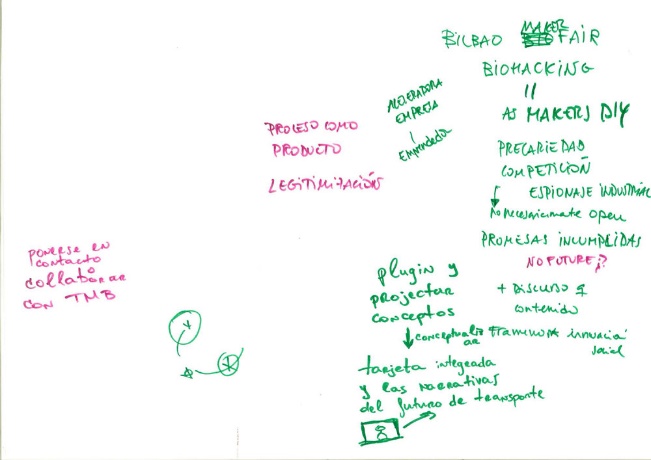 BILBAO MAKER FAIR
BIOHACKING
=
AS MAKERS DIY
ACELERADORA
EMPRESA
Emprendedor
PROCESO COMO
PRODUCTO
LEGITIMIZACIÓN
PRECARIEDAD
COMPETICIÓN
ESPIONAJE INDUSTRIAL
No necesariamente open
PROMESAS INCUMPLIDAS
NO FUTURE?
+ DISCURSO q
contenido
PONERSE EN
contacto
collaborar
CON TMB
plugin y
projectar
conceptos
conceptualizar
ar
framework innovación
social
tarjeta integrada
y las narrativas
del futuro de transporte